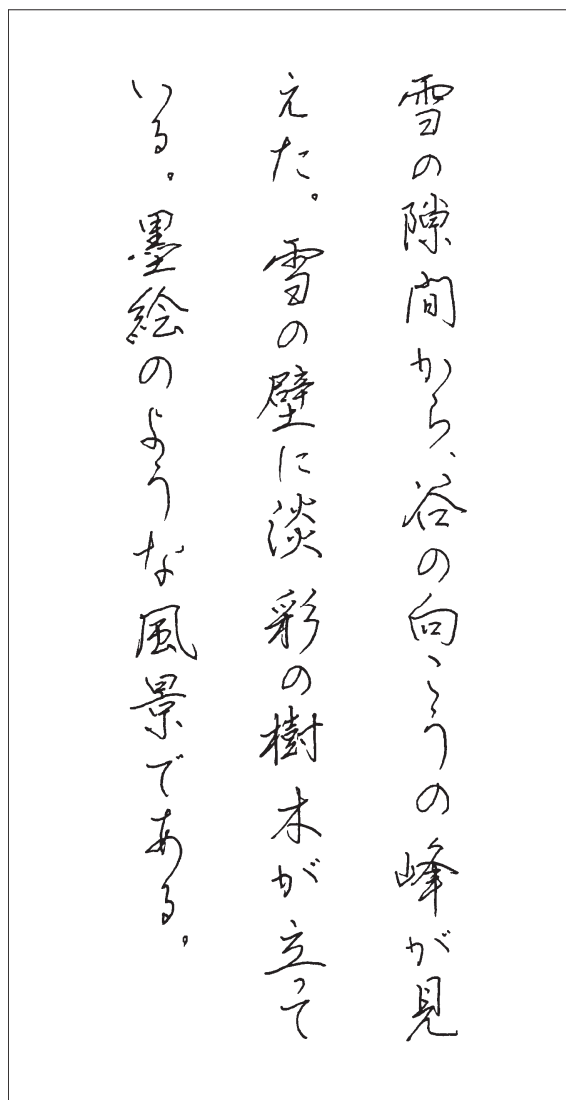 雪の隙間から、谷の向こうの峰が見
えた。雪の壁に淡彩の樹木が立って
いる。墨絵のような風景である。